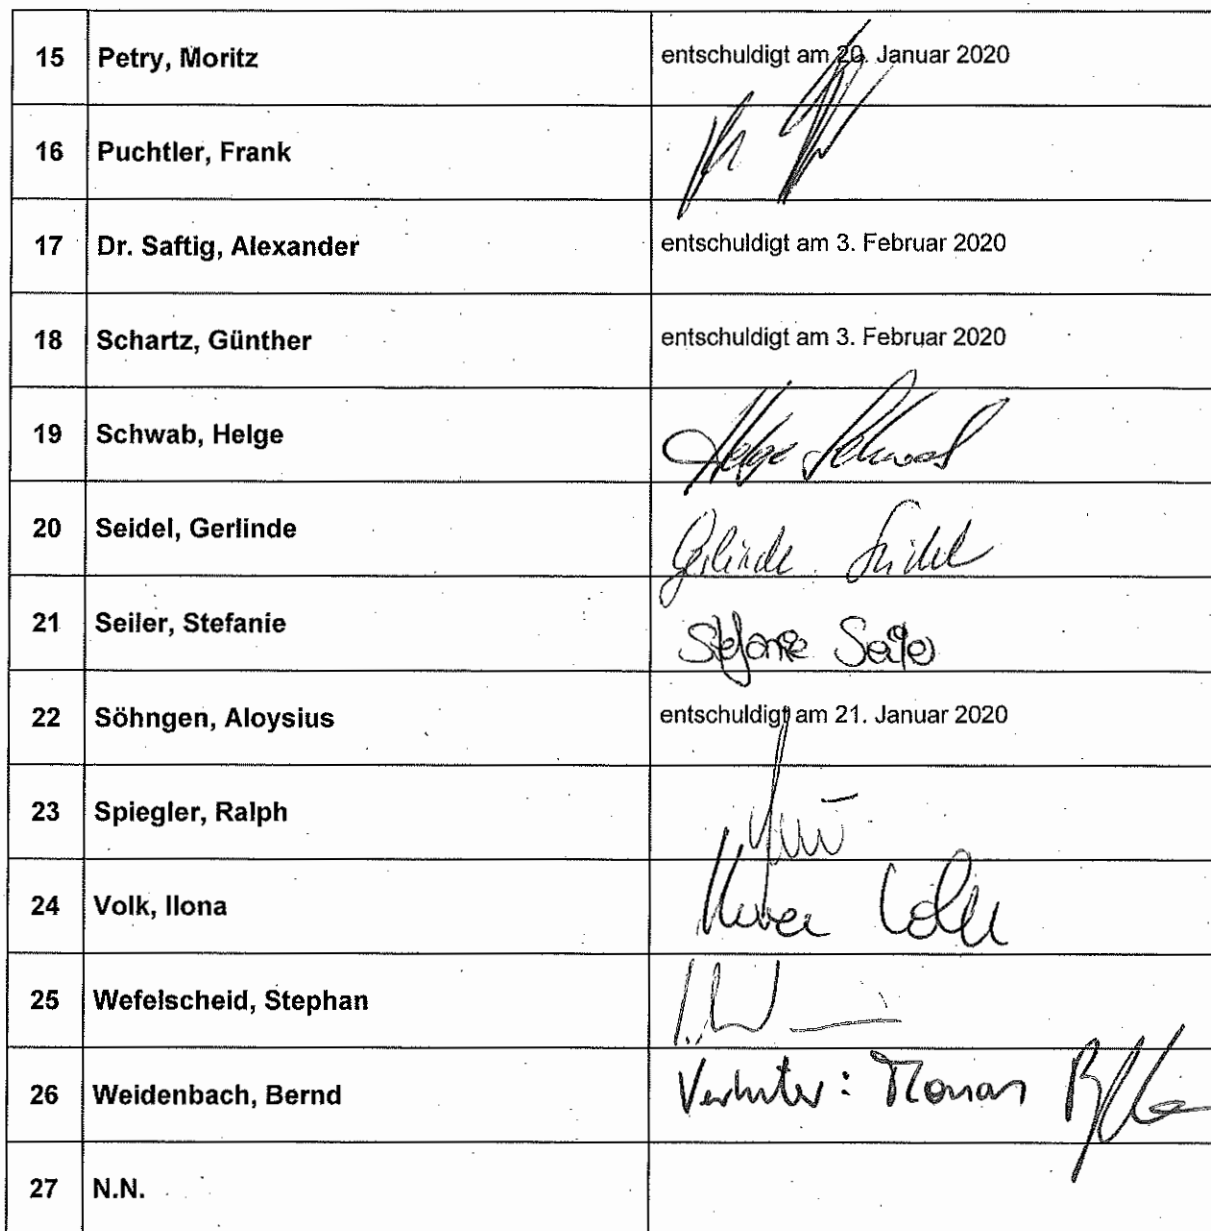 15 Petry, Moritz entschuldigt am 20. Januar 2020
16 Puchtler, Frank
17 Dr. Saftig, Alexander entschuldigt am 3. Februar 2020
18 Schartz, Günther entschuldigt am 3. Februar 2020
19 Schwab, Helge Helge Schwab
20 Seidel, Gerlinde Gerlinde Seidel
21 Seiler, Stefanie Stefanie Seiler
22 Söhngen, Aloysius entschuldigt am 21. Januar 2020
23 Spiegler, Ralph
24 Volk, Ilona Ilona Volk
25 Wefelscheid, Stephan
26 Weidenbach, Bernd Vertreter:
27 N.N.